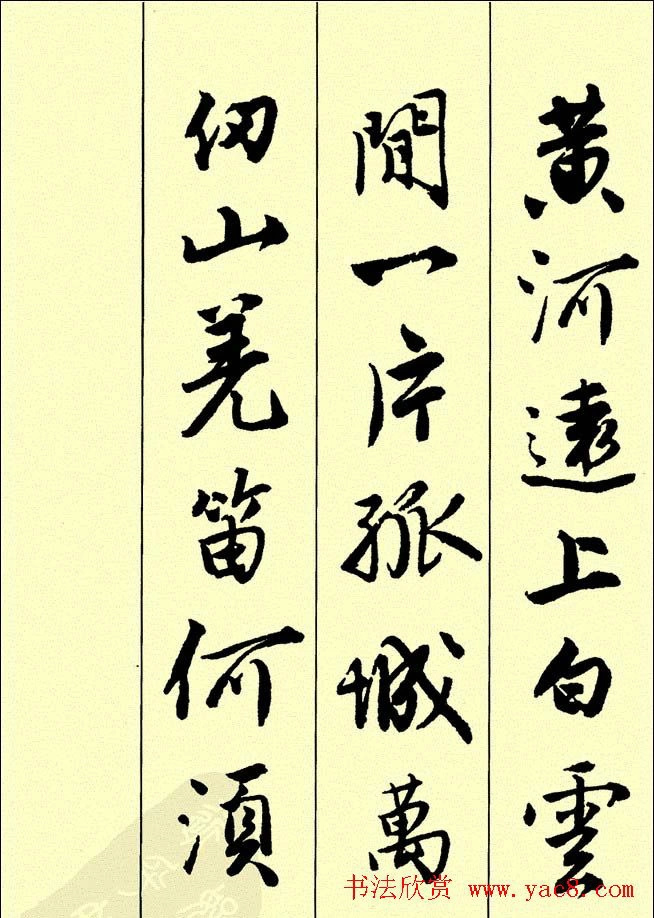 黄河遠上白雲
間一片孤城萬
仞山羌笛何須
书法欣赏 www.yac8.com